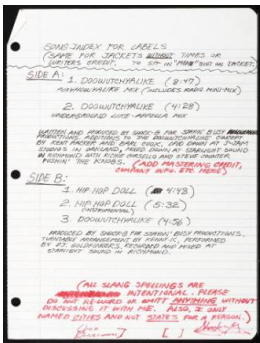 SONG INDEX FOR LABELS
(SAME FOR JACKETS WITHOUT TIMES OR
WRITERS CREDIT. TO SIT IN "MEAN" BUT ON JACKET)
SIDE A:
1. DOOWUTCHYALIKE (8:47)
MIX (INCLUDES RADIO MINI-MIX)
2. DOOWUTCHYALIKE (4:28)
UNDERGROUND LIKE-APPELLA MIX
WRITTEN AND PRODUCED BY SHOCK-G FOR STAYIN' BUSY
PRODUCTIONS. ADDITIONS TO THE DOOWUTCHYALIKE CONCEPT
BY KENT RACKER AND EARL COOK. LAID DOWN AT J-JAM
STUDIO'S IN OAKLAND, MIXED DOWN AT STARLIGHT SOUND
IN RICHMOND WITH RICHIE AND STEVE COUNTER
THE KNOBS. (ADD MASTERING CREDIT,
COMPANY INFO. ETC. HERE)
SIDE B:
1. HIP HOP DOLL 4:43
2. HIP HOP DOLL (5:32)
(INSTRUMENTAL)
3. DOOWUTCHYALIKE (4:56)
PRODUCED BY SHOCK-G FOR STAYIN' BUSY PRODUCTIONS.
TURNTABLE ARRANGEMENT BY KENNY-K, PERFORMED
BY D.J. RECORDED AND MIXED AT
STARLIGHT SOUND IN RICHMOND.
(ALL SLANG SPELLINGS ARE
INTENTIONAL. PLEASE
DO NOT RE-WORD OR OMITT ANYTHING WITHOUT
DISCUSSING IT WITH ME. ALSO, I ONLY
NAMED CITIES AND NOT STATES FOR A REASON.)